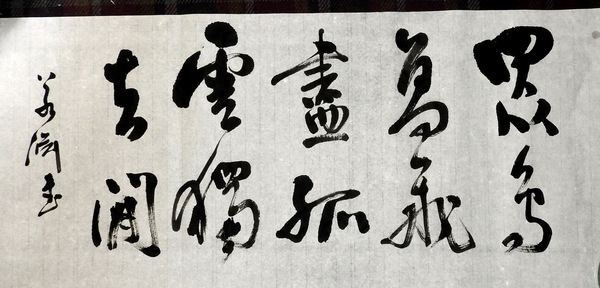 眾鳥
高飛
盡孤
雲獨
去閒